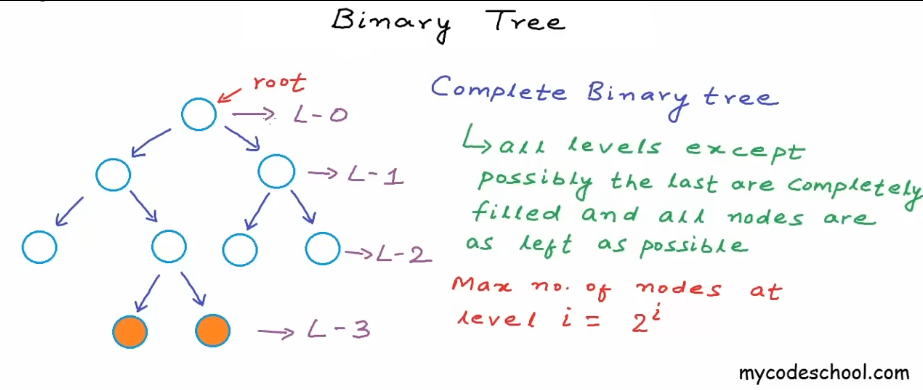 Binary Tree
root
L-0
L-1
L-2
L-3
Complete Binary tree
all levels except
possibly the last are completely
filled and all nodes are
as left as possible
Max no. of nodes at
level i = 2^i
mycodeschool.com